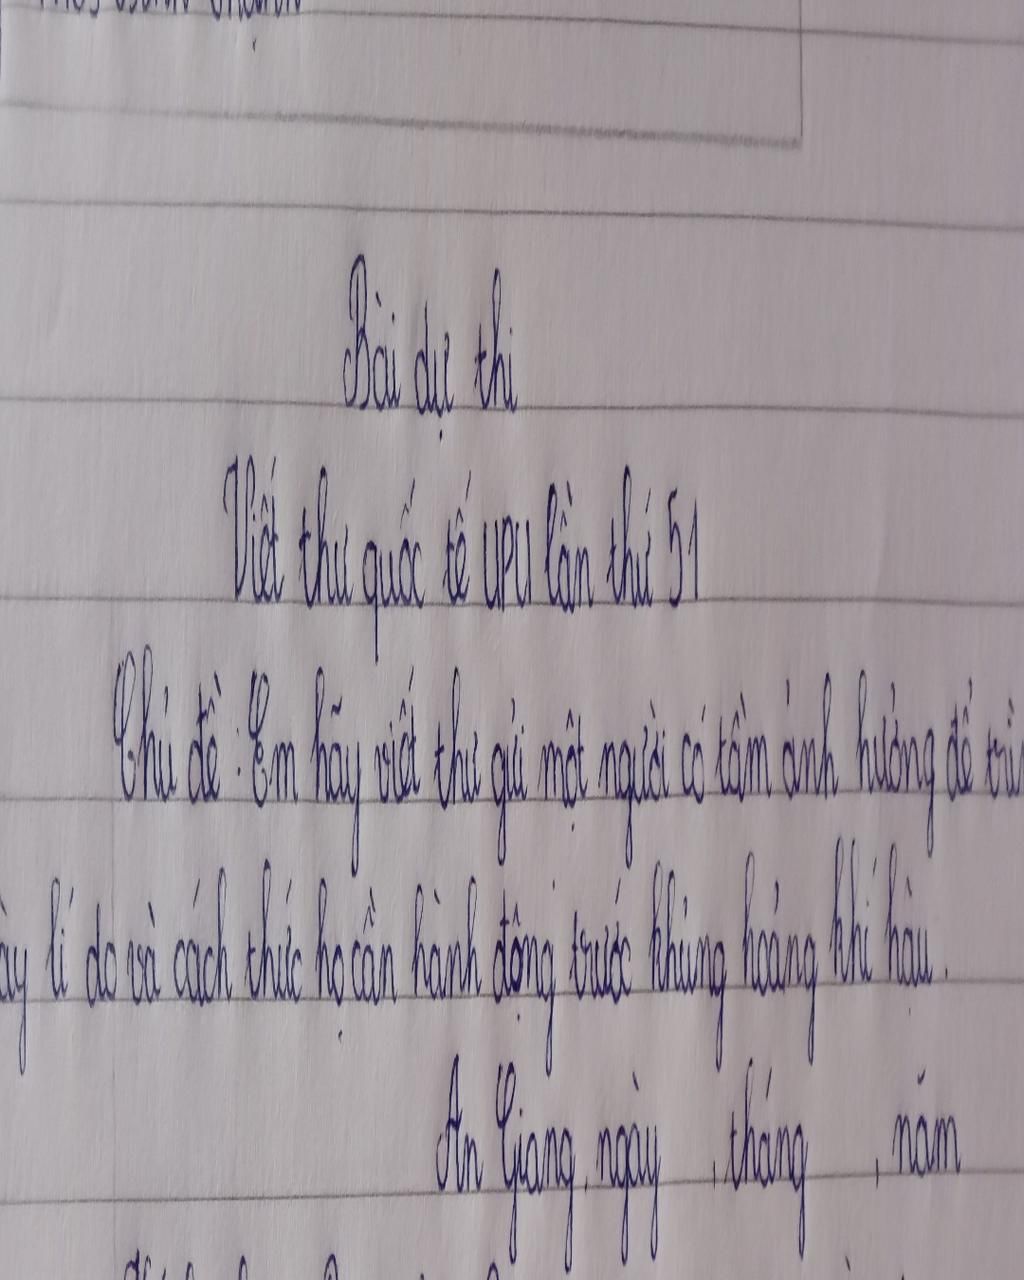 Bài dự thi
Viết thư quốc tế UPU lần thứ 51
Chủ đề : Em hãy viết thư gửi một người có tầm ảnh hưởng để
lí do và cách thức họ cần hành động trước khủng hoảng khí hậu.
An Giang, ngày , tháng , năm